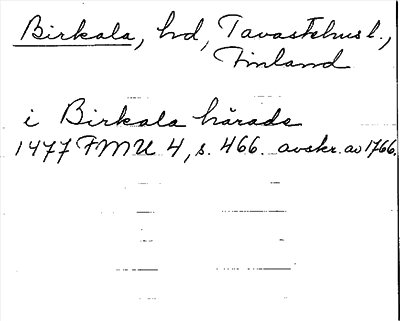 Birkala, hd, Tavastehus l.,
Finland
i Birkala härade
1477 FMU 4, s. 466. avskr. av 1766.